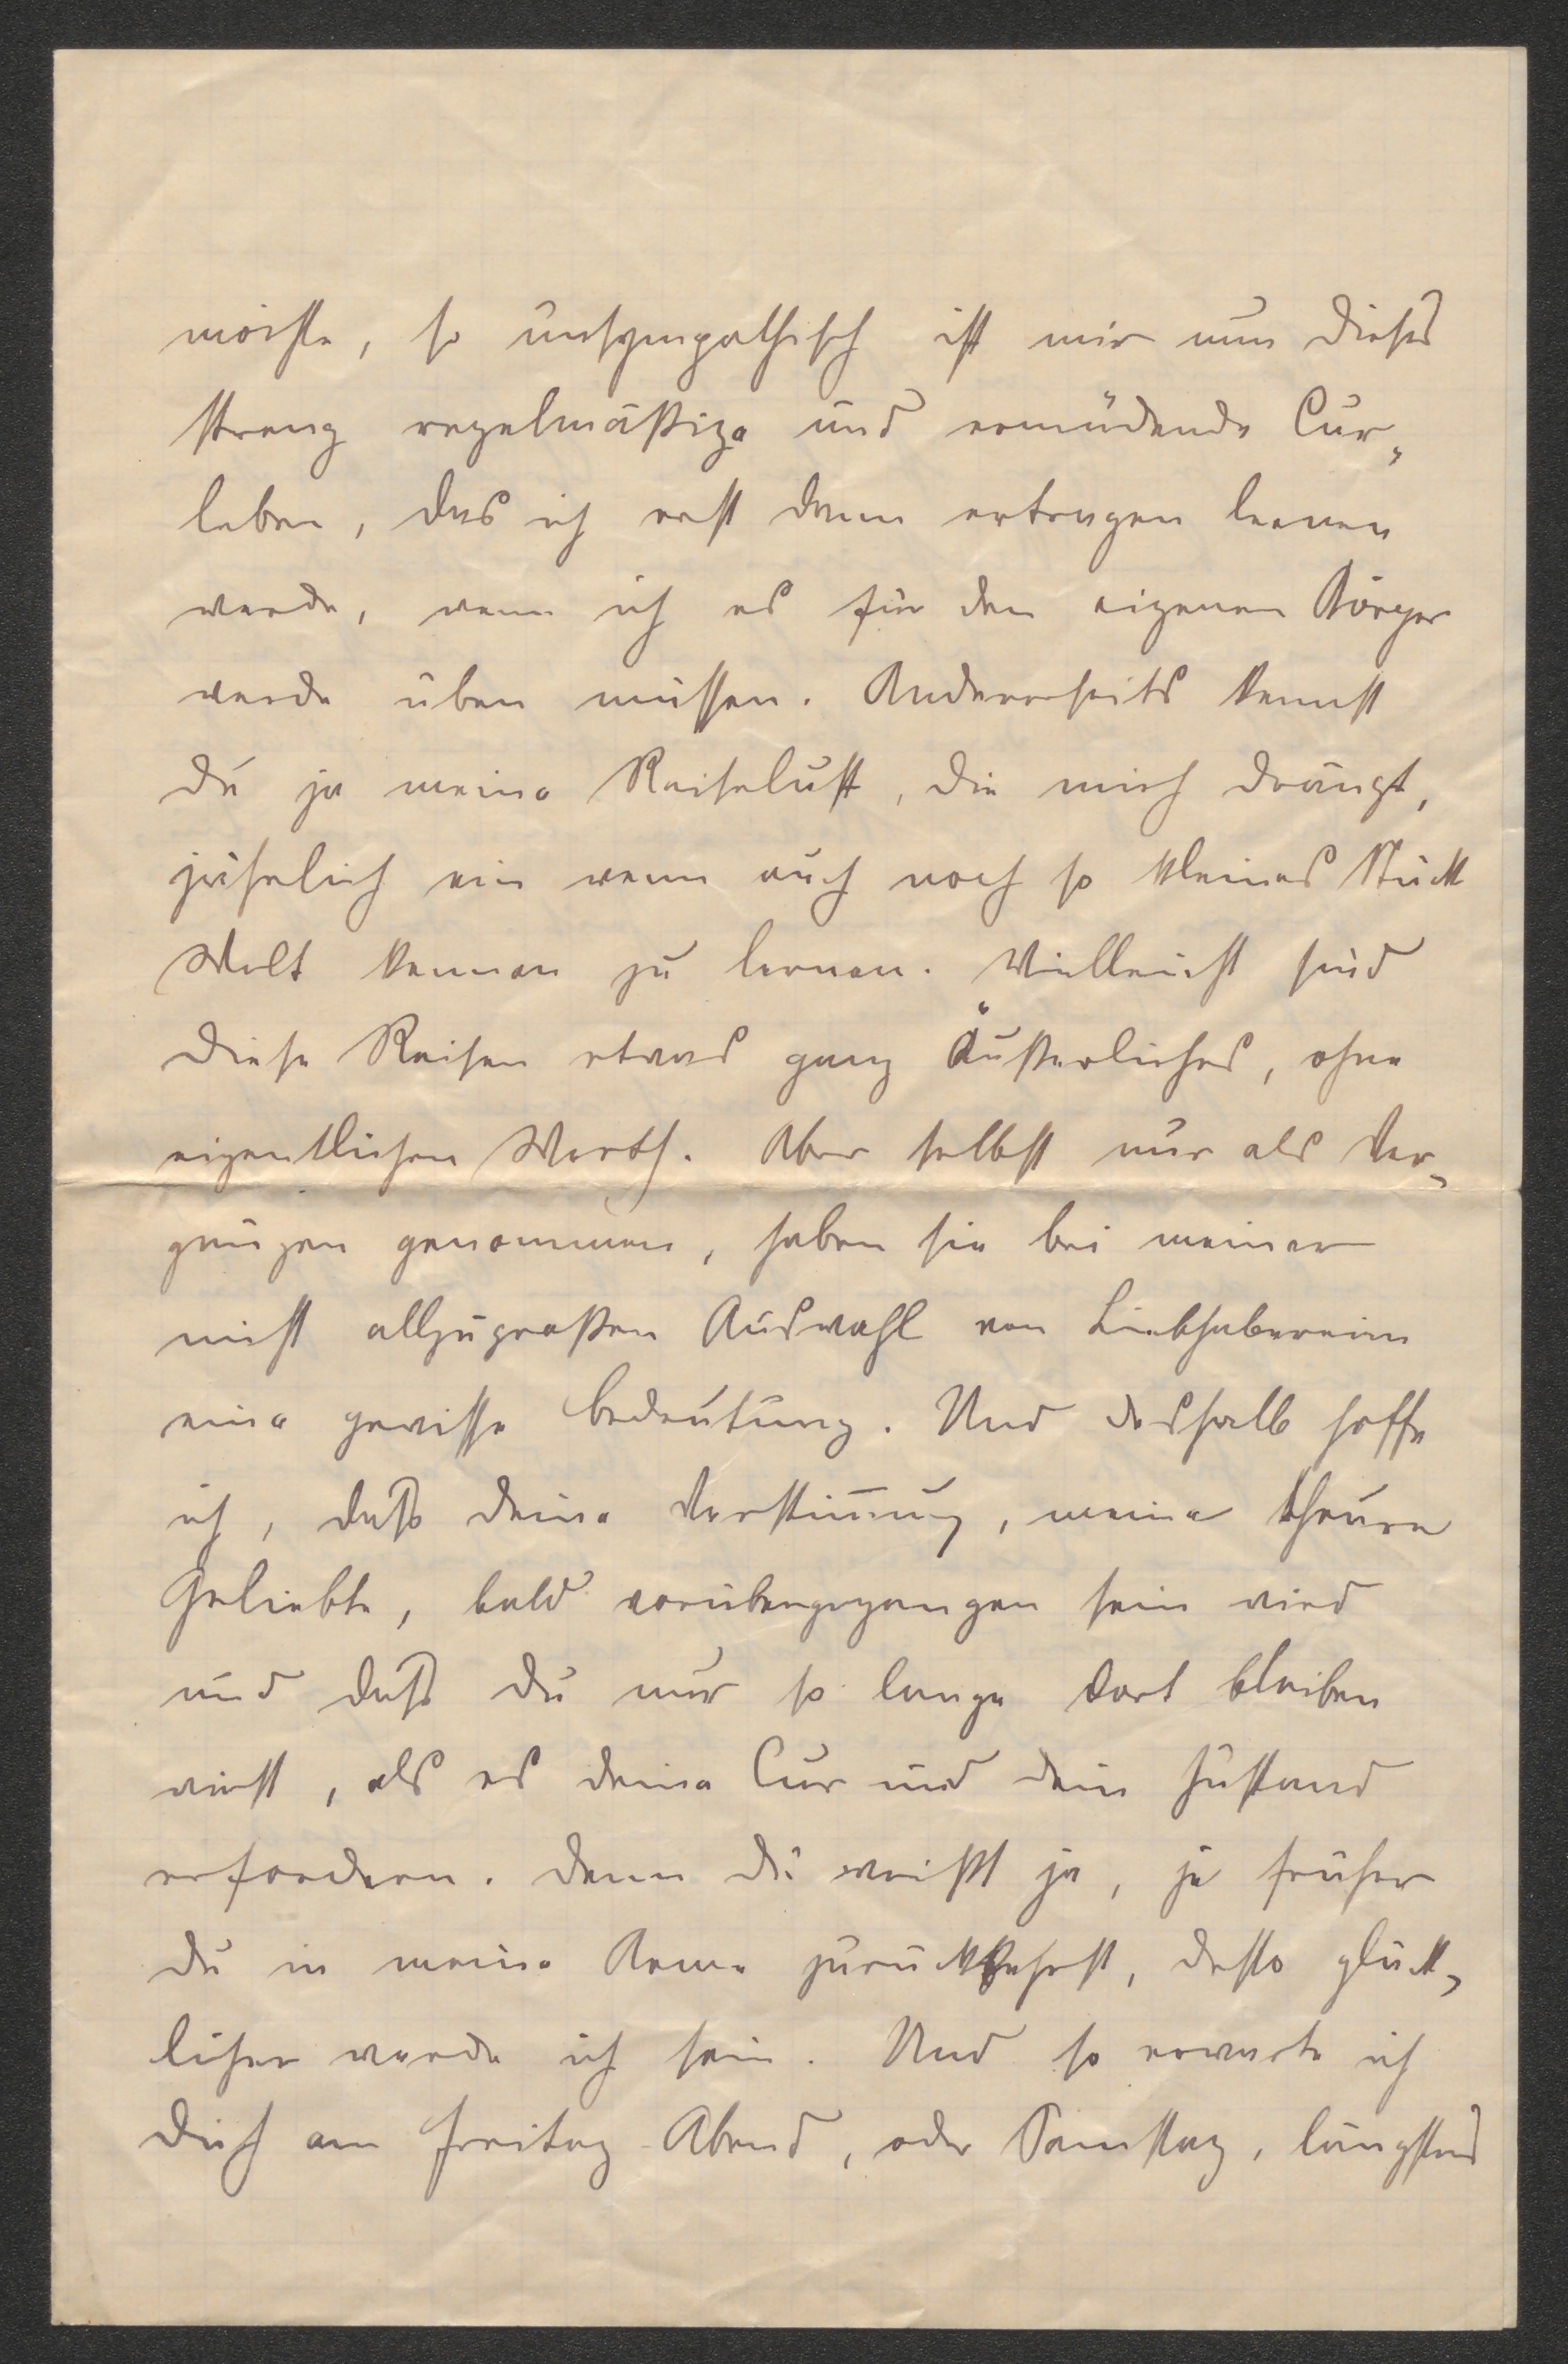 möchte, so unsympathisch ist mir nun dieses
streng regelmäßige und ermüdende Cur-
leben, das ich erst dann ertragen lernen
werde, wenn ich es für den eigenen Körper
werde üben müssen. Andererseits kennst
du ja meine Reiselust, die mich drängt,
jährlich ein wenn auch noch so kleines Stück
Welt kennen zu lernen. Vielleicht sind
diese Reisen etwas ganz Äußerliches, ohne
eigentlichen Werth. Aber selbst nur als Ver-
gnügen genommen, haben sie bei meiner
nicht allzugroßen Auswahl von Liebhabereien
eine gewisse Bedeutung. Und deshalb hoffe
ich, daß deine Verstim̅ung, meine theure
Geliebte, bald vorübergegangen sein wird
und daß du nur so lange dort bleiben
wirst, als es deine Cur und dein Zustand
erfordern. Denn du weißt ja, je früher
du in meine Arme zurückkehrst, desto glück-
licher werde ich sein. Und so erwarte ich
dich am Freitag Abend, oder Samstag, längstens